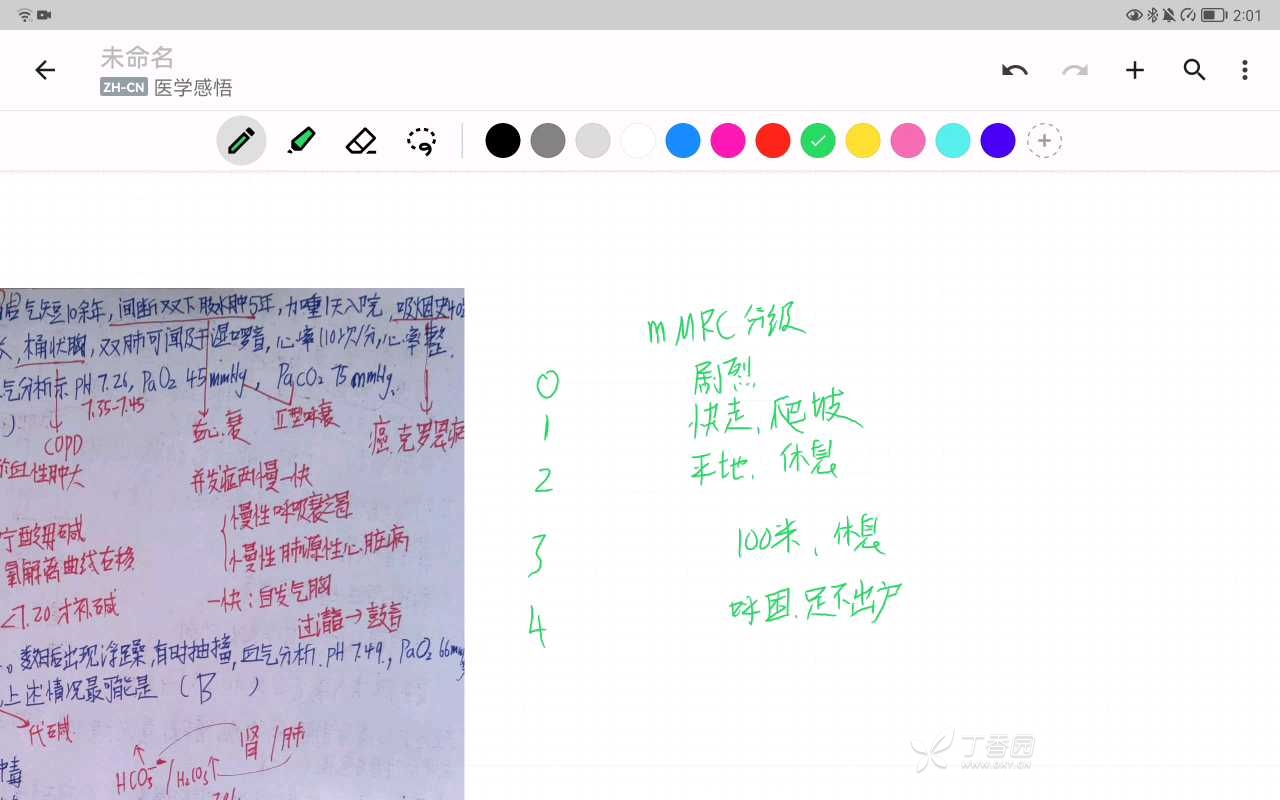 2:01
未命名
ZH-CN 医学感悟
气短10余年，间断双下肢水肿5年，加重1天入院，吸烟史40
桶状胸，双肺可闻及干湿啰音，心率110次/分，心率整.
气分析示 PH 7.26, PaO2 45mmHg, PaCO2 75mmHg.
)
7.35-7.45
COPD
右心衰
II型呼衰
癌.克罗恩病
血性肿大
并发症两慢一快
慢性呼吸衰竭
慢性肺源性心脏病
一快：自发气胸
过清音→鼓音
氧解离曲线右移
<7.20才补碱
。数日后出现浮躁,有时抽搐,血气分析.PH 7.49., PaO2 66mm
上述情况最可能是 (B )
代碱
肾/肺
HCO3-/H2CO3
中毒
mMRC 分级
0 剧烈
1 快走、爬坡
2 平地、休息
3 100米、休息
4 呼困.足不出户
丁香园
WWW.DXY.CN